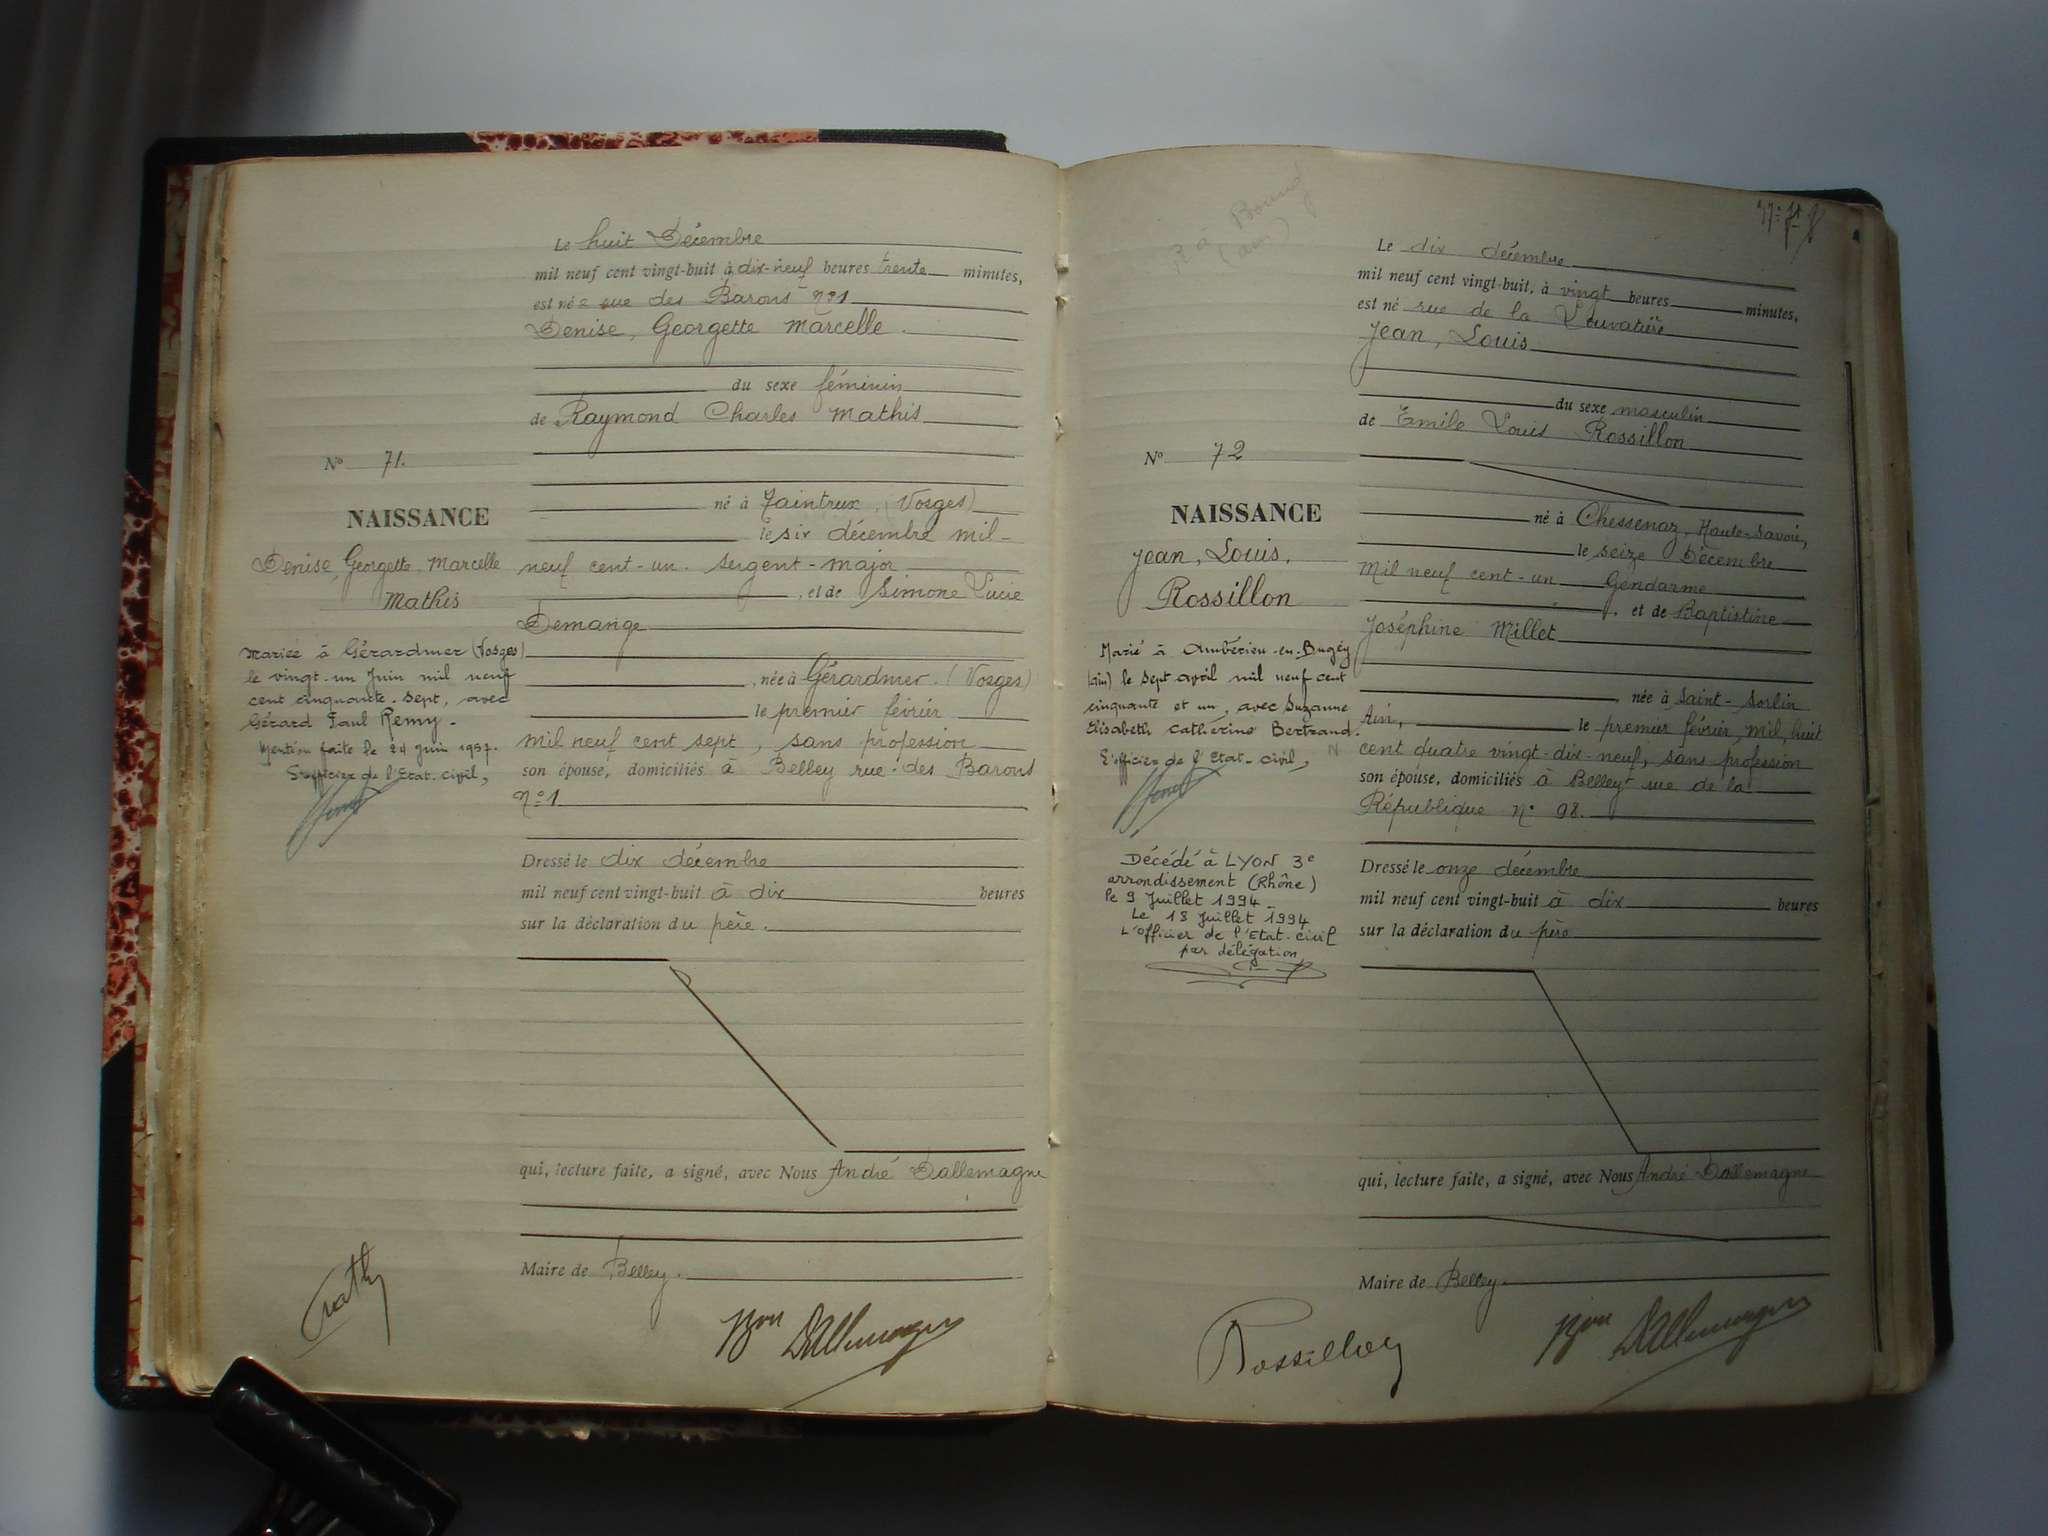 Le huit Décembre
mil neuf cent vingt-huit à dix-neuf heures trente minutes,
est née rue des Barons n°1
Denise, Georgette Marcelle.
du sexe féminin
de Raymond Charles Mathis
N° 71.
NAISSANCE
Denise, Georgette, Marcelle
Mathis
né à Taintrux, (Vosges)
le six décembre mil-
neuf cent-un. sergent-major
, et de Simone Lucie
Demange
, née à Gérardmer (Vosges)
le premier février
mil neuf cent sept, sans profession
son épouse, domiciliés à Belley rue des Barons
n°1
Mariée à Gérardmer (Vosges)
le vingt-un Juin mil neuf
cent cinquante-sept, avec
Gérard Paul Remy.
Mention faite le 24 juin 1957.
L'officier de l'Etat-civil,
Dressé le dix décembre
mil neuf cent vingt-huit à dix heures
sur la déclaration du père.
qui, lecture faite, a signé, avec Nous André Dallemagne
Maire de Belley.
Dallemagne
R à Bourg
(ain)
Le dix décembre
mil neuf cent vingt-huit, à vingt heures minutes,
est né rue de la Louvatière
Jean, Louis
du sexe masculin
de Emile Louis Rossillon
N° 72
NAISSANCE
Jean, Louis,
Rossillon
né à Chessenaz, Haute-Savoie,
le seize Décembre
Mil neuf cent-un Gendarme
, et de Baptistine
Joséphine Millet
, née à Saint-Sorlin
Ain, le premier février, mil, huit
cent quatre vingt-dix-neuf, sans profession
son épouse, domiciliés à Belley rue de la
République n° 98.
Marié à Ambérieu-en-Bugey
(ain) le sept avril mil neuf cent
cinquante et un, avec Suzanne
Elisabeth Catherine Bertrand.
L'officier de l'Etat-civil,
Décédé à LYON 3e
arrondissement (Rhône)
le 9 Juillet 1994
Le 18 Juillet 1994
L'Officier de l'Etat-civil
par délégation,
Dressé le onze décembre
mil neuf cent vingt-huit à dix heures
sur la déclaration du père
qui, lecture faite, a signé, avec Nous André Dallemagne
Maire de Belley.
Rossillon
Dallemagne